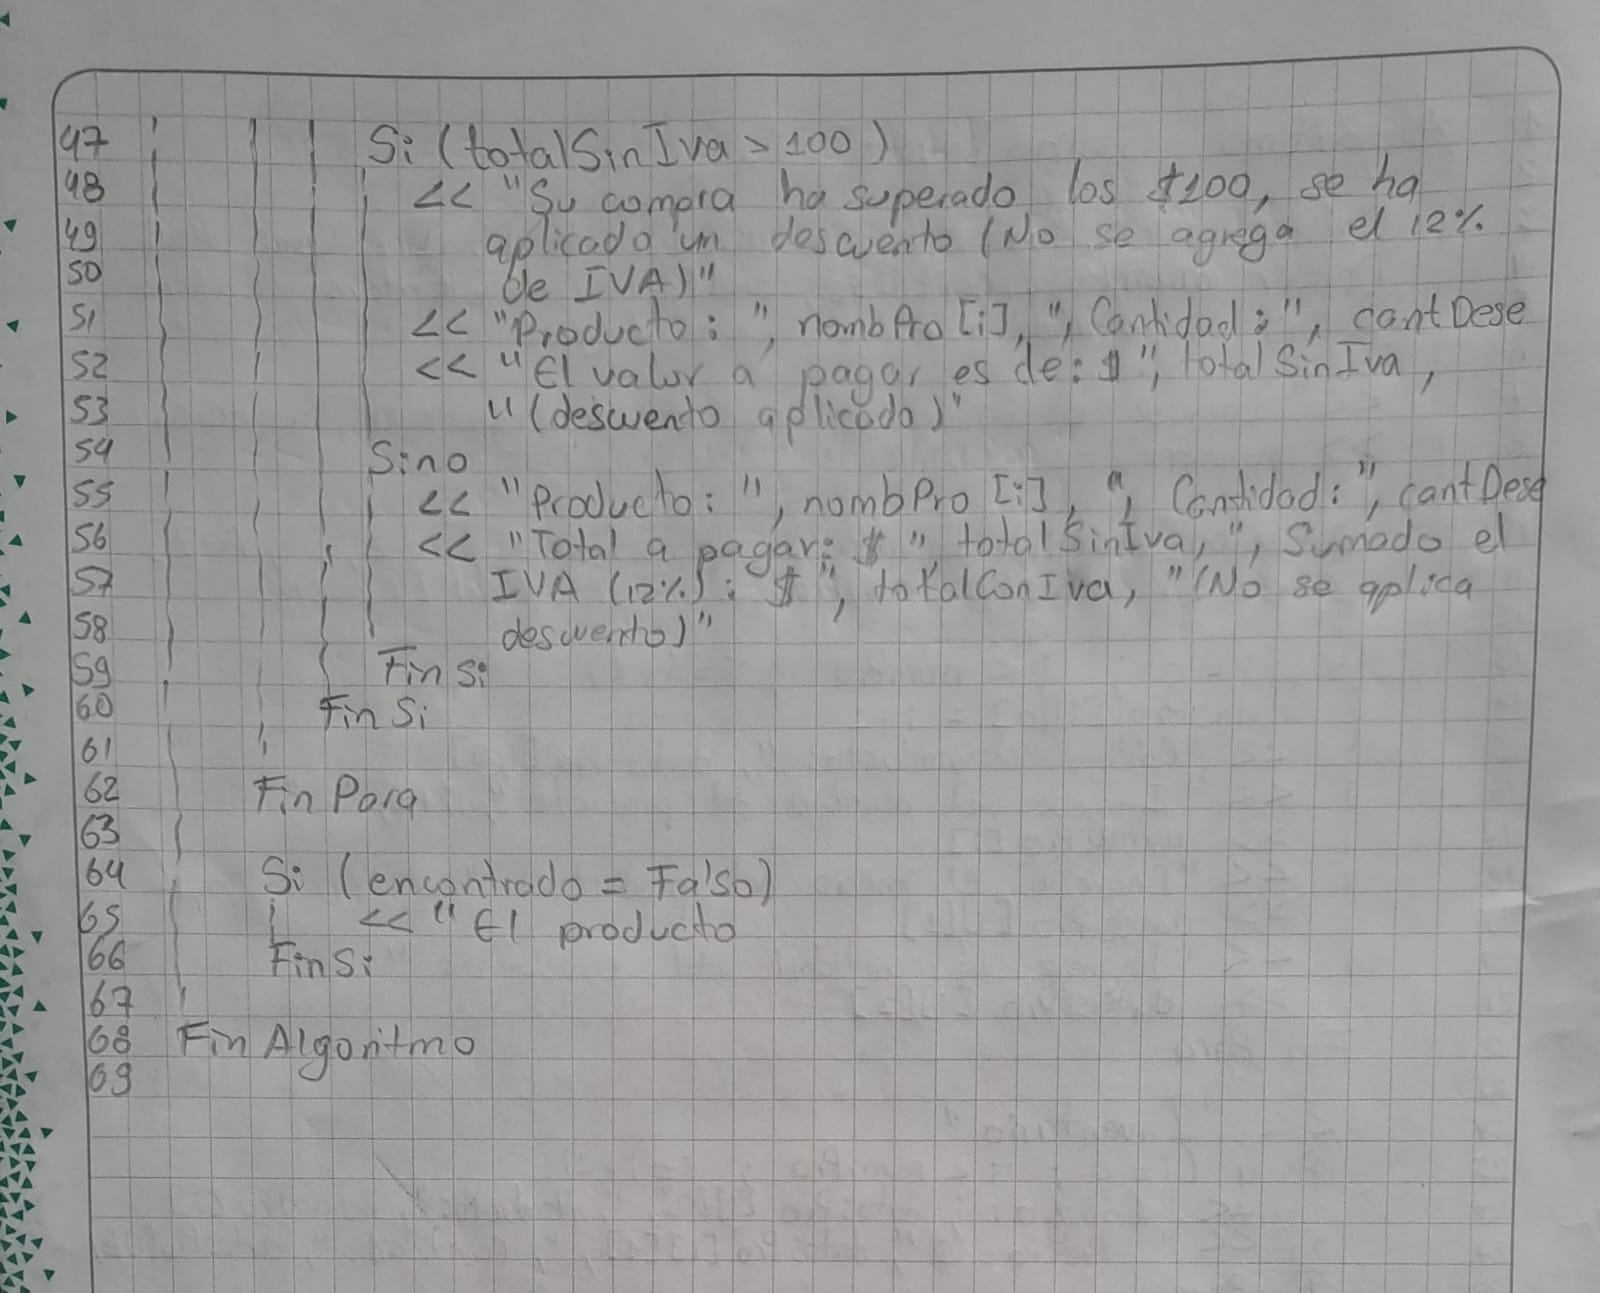 47 Si (totalSinIva > 100)
48 << "Su compra ha superado los $100, se ha
49 aplicado un descuento (No se agrega el 12%
50 de IVA)"
51 << "Producto: ", nombPro [i], ", Cantidad: ", cantDese
52 << "El valor a pagar es de: $ ", totalSinIva,
53 " (descuento aplicado)"
54 Sino
55 << "Producto: ", nombPro [i], ", Cantidad: ", cantDese
56 << "Total a pagar: $ ", totalSinIva, ", Sumado el
57 IVA (12%): $ ", totalConIva, " (No se aplica
58 descuento)"
59 Fin Si
60 Fin Si
61
62 Fin Para
63
64 Si (encontrado = Falso)
65 << "El producto
66 Fin Si
67
68 Fin Algoritmo
69